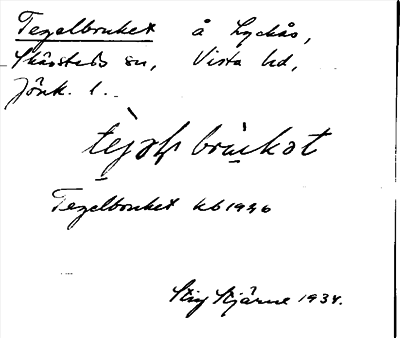 Tegelbruket å Lyckås,
Skärstads sn, Vista hd,
Jönk. l.
tèjəl brùkət
Tegelbruket kb 1936
Stig Stjärne 1934.